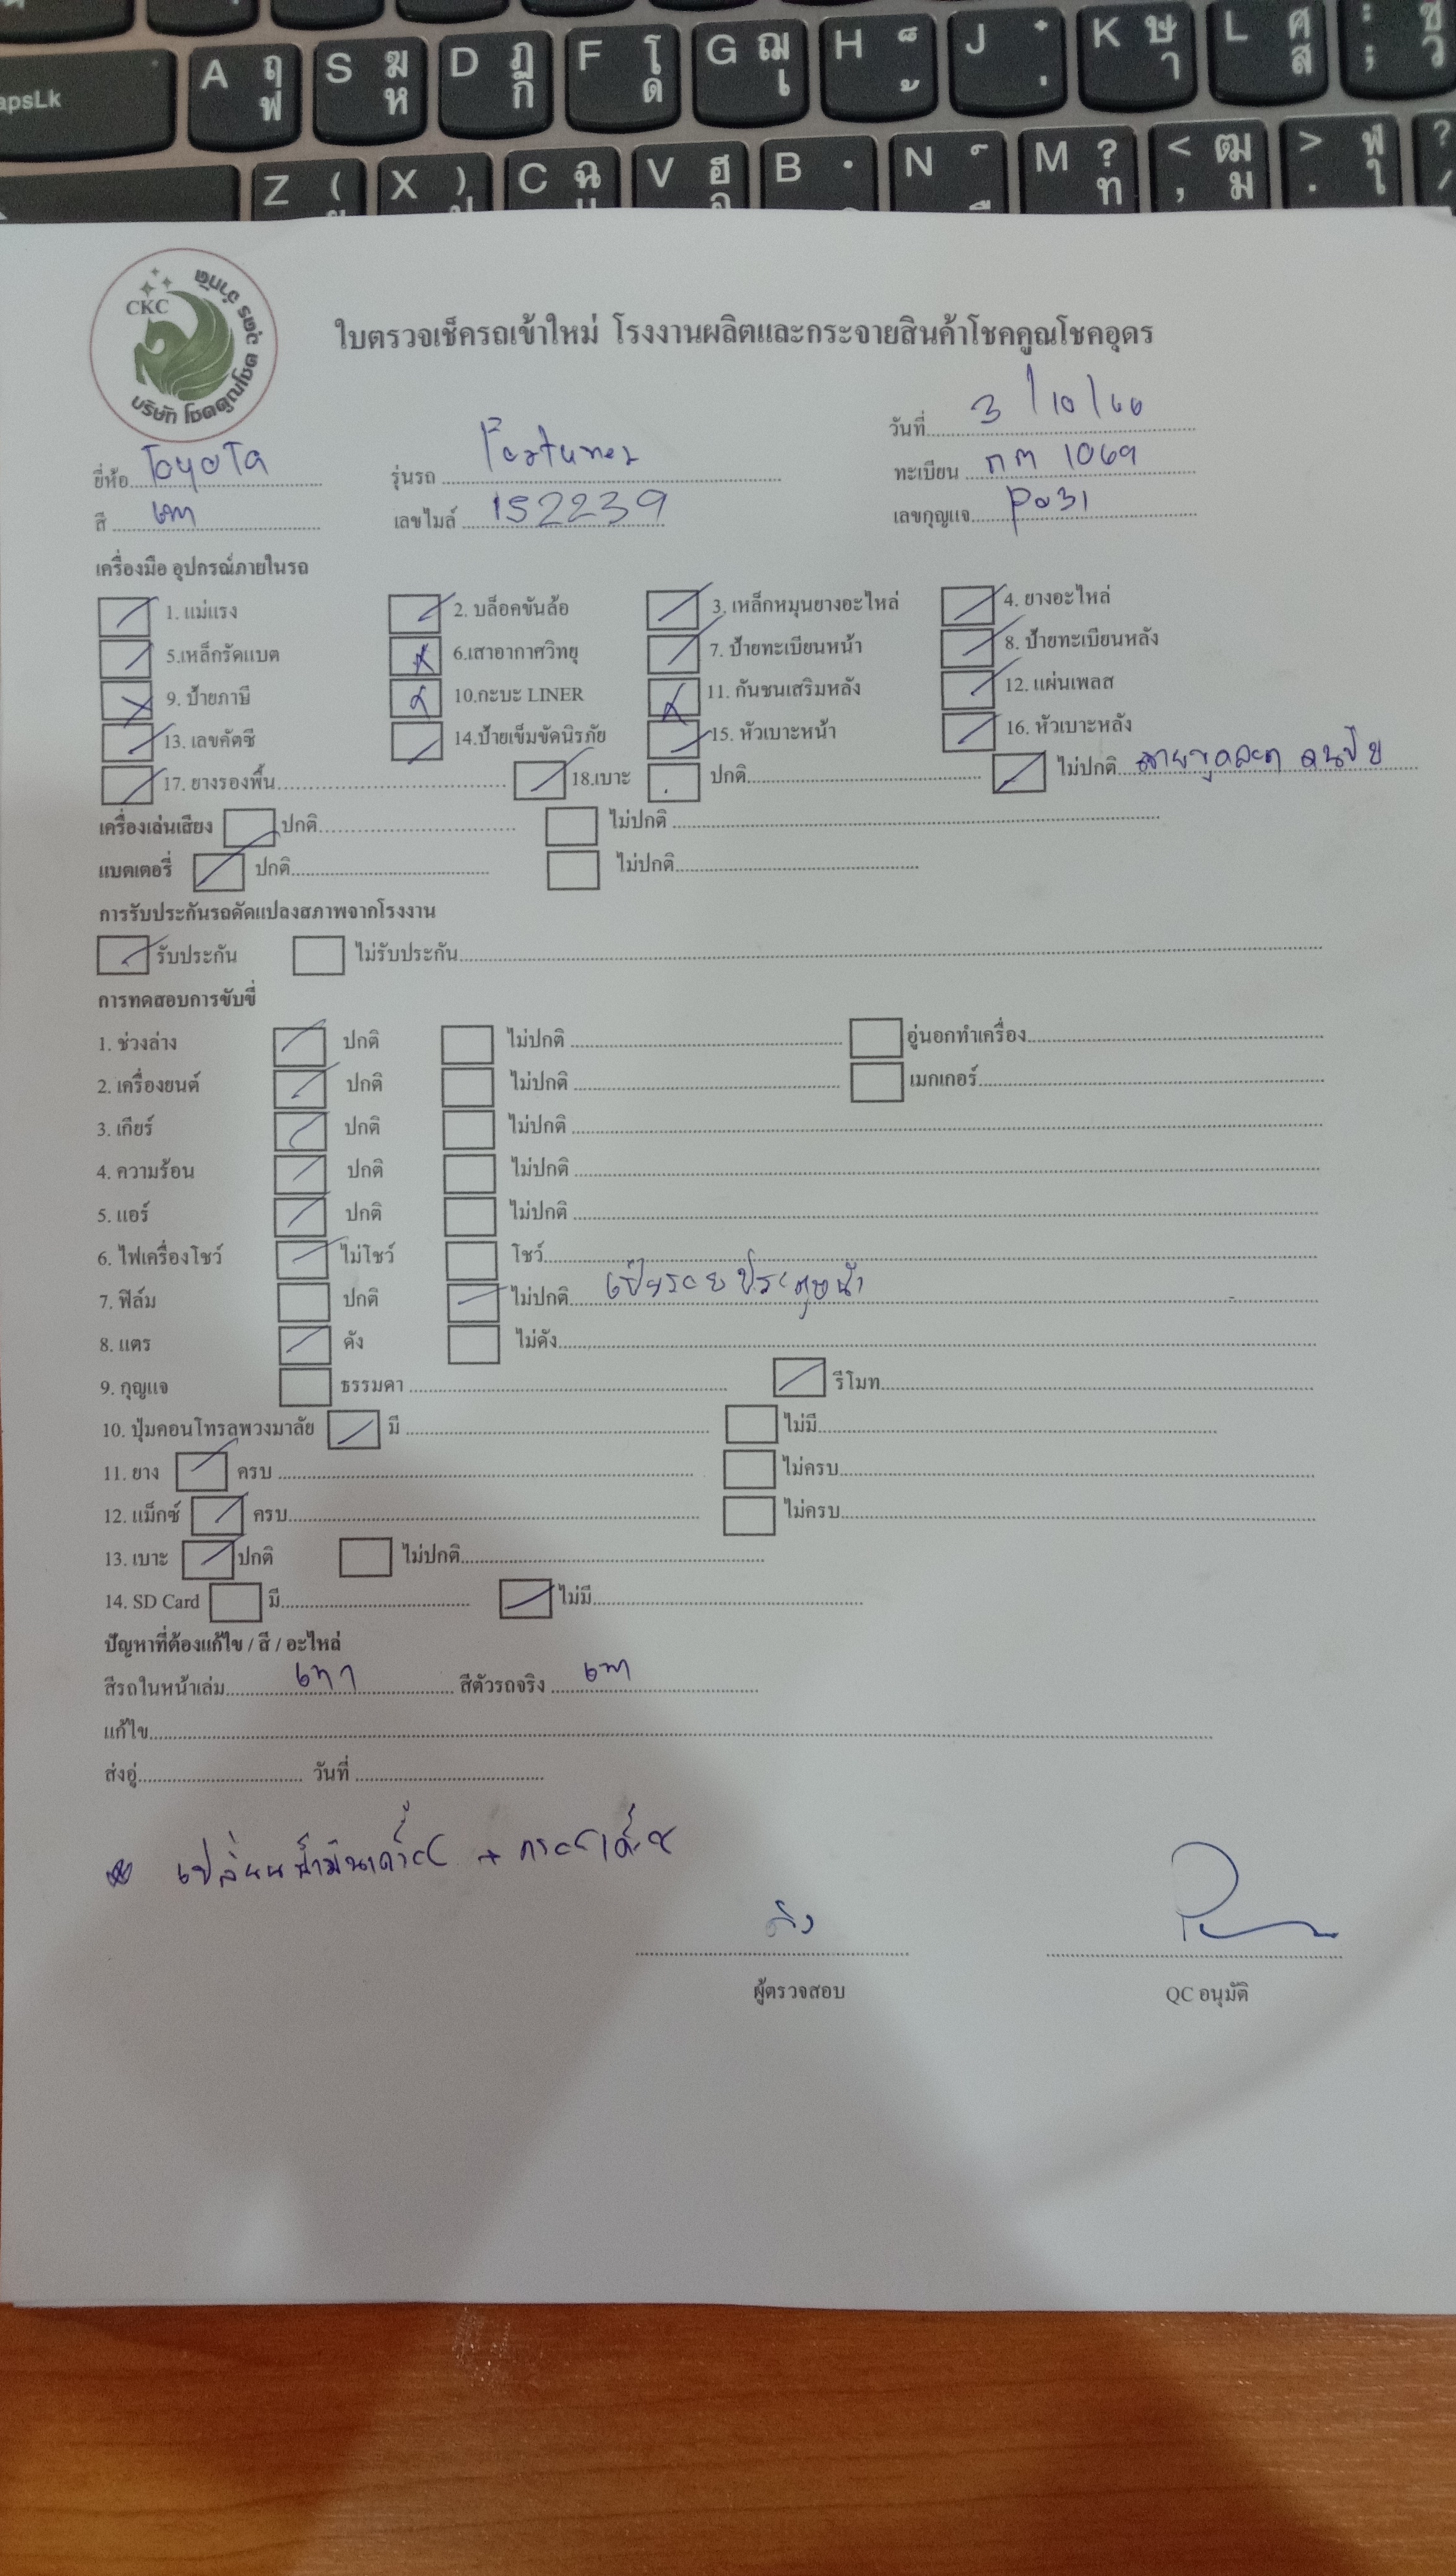 apsLk A ฤ ฟ S ฆ ห D ฏ ก F โ ด G ฌ เ H ็ ้ J ๋ ่ K ษ า L ศ ส : ; ซ ว
Z ( X ) C ฉ V ฮ B N ์ M ? ท < , ฒ ม > . ฬ ใ ? /
CKC
บริษัท โชคคูณโชค อุดร จำกัด
ใบตรวจเช็ครถเข้าใหม่ โรงงานผลิตและกระจายสินค้าโชคคูณโชคอุดร
วันที่ 3/10/66
ยี่ห้อ ToyoTa รุ่นรถ Fortuner ทะเบียน กต 1069
สี เทา เลขไมล์ 152239 เลขกุญแจ P031
เครื่องมือ อุปกรณ์ภายในรถ
1. แม่แรง 2. บล็อคขันล้อ 3. เหล็กหมุนยางอะไหล่ 4. ยางอะไหล่
5.เหล็กรัดแบต 6.เสาอากาศวิทยุ 7. ป้ายทะเบียนหน้า 8. ป้ายทะเบียนหลัง
9. ป้ายภาษี 10.กะบะ LINER 11. กันชนเสริมหลัง 12. แผ่นเพลส
13. เลขคัตซี 14.ป้ายเข็มขัดนิรภัย 15. หัวเบาะหน้า 16. หัวเบาะหลัง
17. ยางรองพื้น 18.เบาะ ปกติ ไม่ปกติ
เครื่องเล่นเสียง ปกติ ไม่ปกติ
แบตเตอรี่ ปกติ ไม่ปกติ
การรับประกันรถดัดแปลงสภาพจากโรงงาน
รับประกัน ไม่รับประกัน
การทดสอบการขับขี่
1. ช่วงล่าง ปกติ ไม่ปกติ อู่นอกทำเครื่อง
2. เครื่องยนต์ ปกติ ไม่ปกติ เมกเกอร์
3. เกียร์ ปกติ ไม่ปกติ
4. ความร้อน ปกติ ไม่ปกติ
5. แอร์ ปกติ ไม่ปกติ
6. ไฟเครื่องโชว์ ไม่โชว์ โชว์
7. ฟิล์ม ปกติ ไม่ปกติ เป็นรอย
8. แตร ดัง ไม่ดัง
9. กุญแจ ธรรมดา รีโมท
10. ปุ่มคอนโทรลพวงมาลัย มี ไม่มี
11. ยาง ครบ ไม่ครบ
12. แม็กซ์ ครบ ไม่ครบ
13. เบาะ ปกติ ไม่ปกติ
14. SD Card มี ไม่มี
ปัญหาที่ต้องแก้ไข / สี / อะไหล่
สีรถในหน้าเล่ม เทา สีตัวรถจริง เทา
แก้ไข
ส่งอู่ วันที่
เปลี่ยนน้ำมันเครื่อง +
ผู้ตรวจสอบ QC อนุมัติ